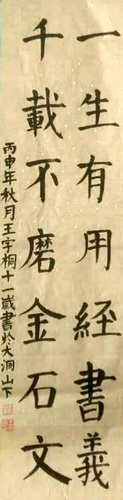 一生有用經書義
千載不磨金石文
丙申年秋月王字桐十一歲書於大洞山下